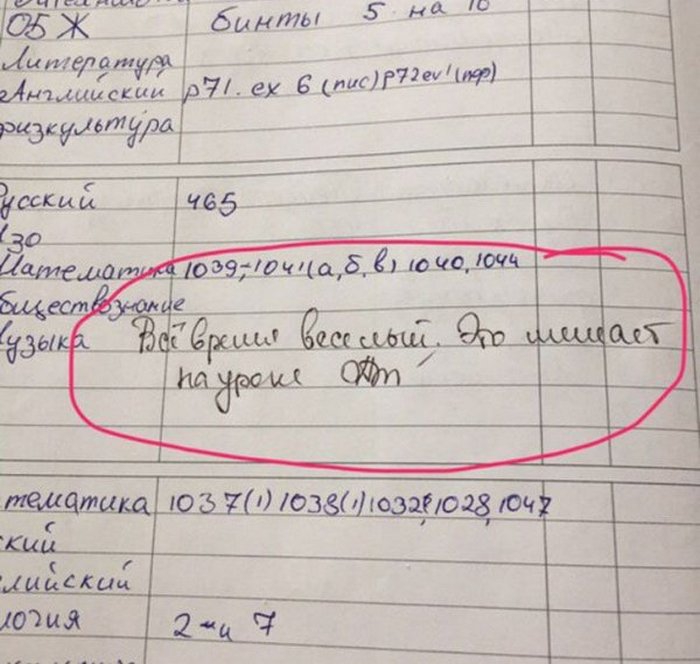 ОБЖ бинты 5 на 10
Литература
Английский р71. ex 6 (пис) р72 ex 1 (пер)
физкультура
усский 465
ИЗО
Математика 1039, 1041 (а, б, в) 1040, 1044
бществознание
узыка Всё время веселый. Это мешает
на уроке
тематика 1037(1) 1038(1) 1032, 1028, 1047
кий
лийский
логия 2 и 7